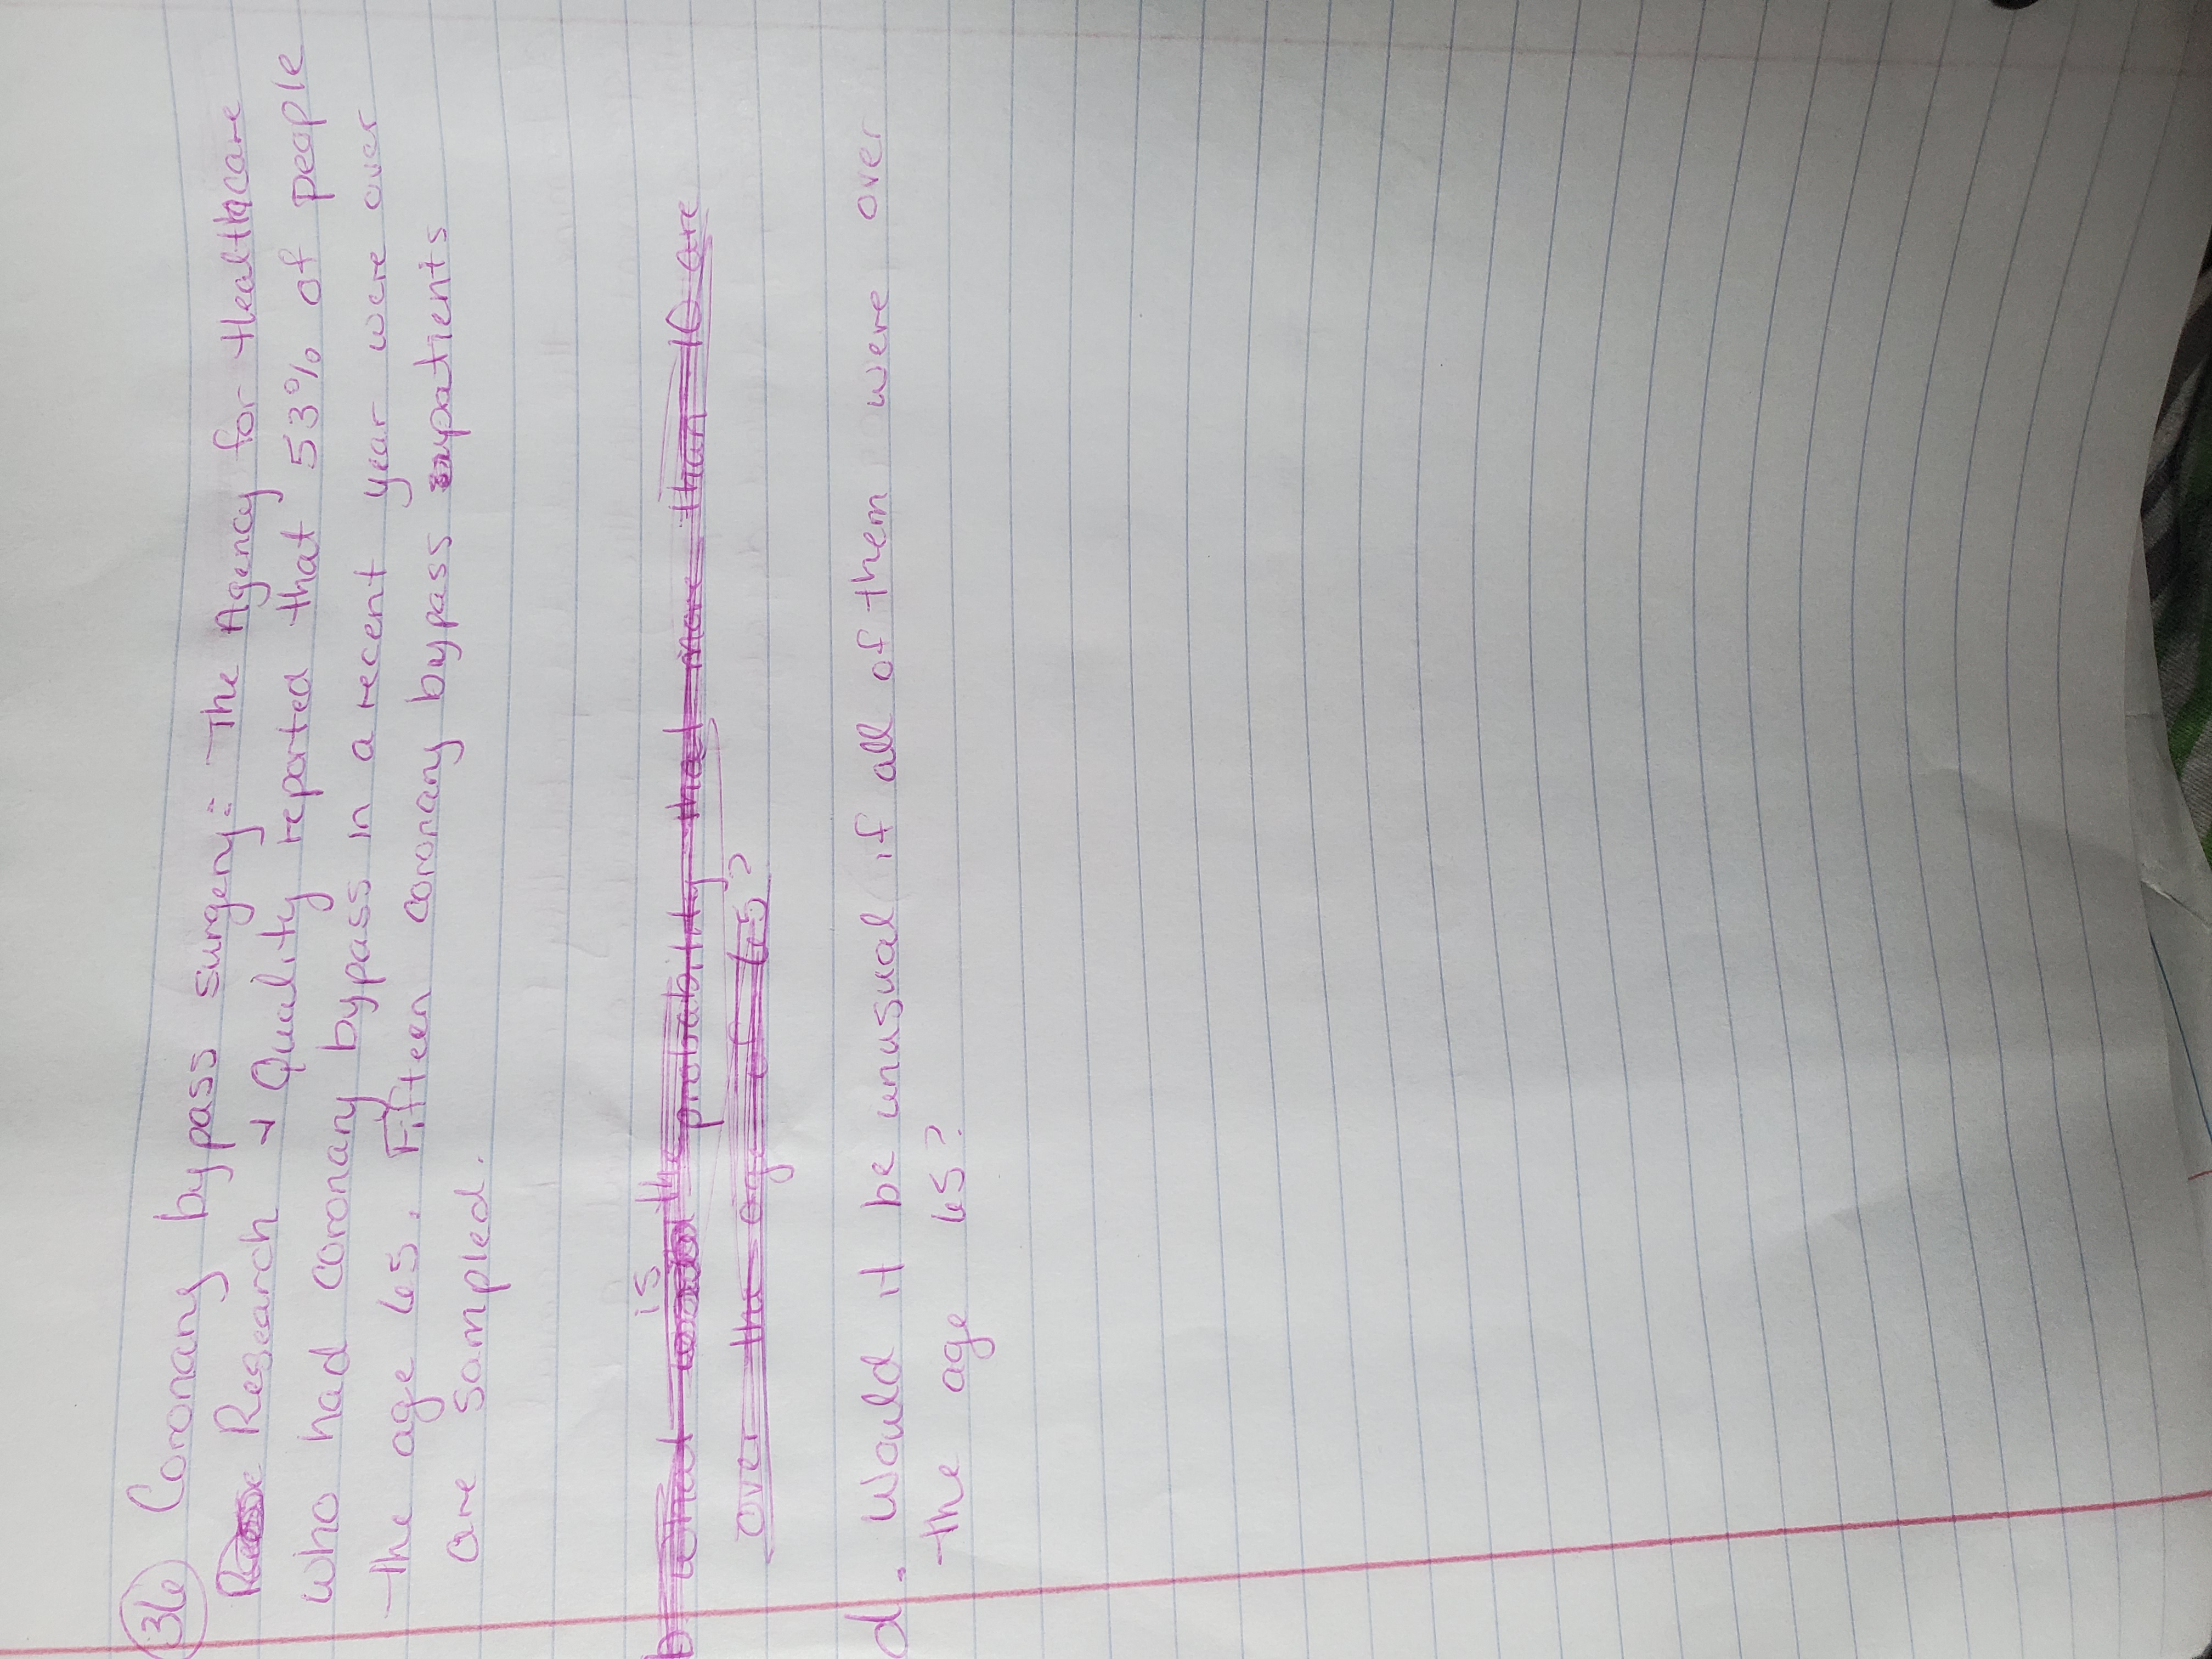 36 Coronary bypass surgery: The Agency for Healthcare
Research & Quality reported that 53% of people
who had coronary bypass in a recent year were over
the age 65. Fifteen coronary bypass patients
are sampled.
is
b. What the probability that more than 10 are
over the age of 65?
d. Would it be unusual if all of them were over
the age 65?